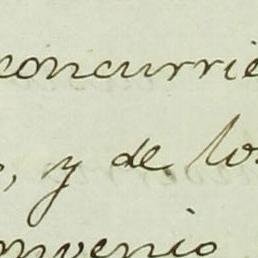 concurrie
, y de los
onvenio